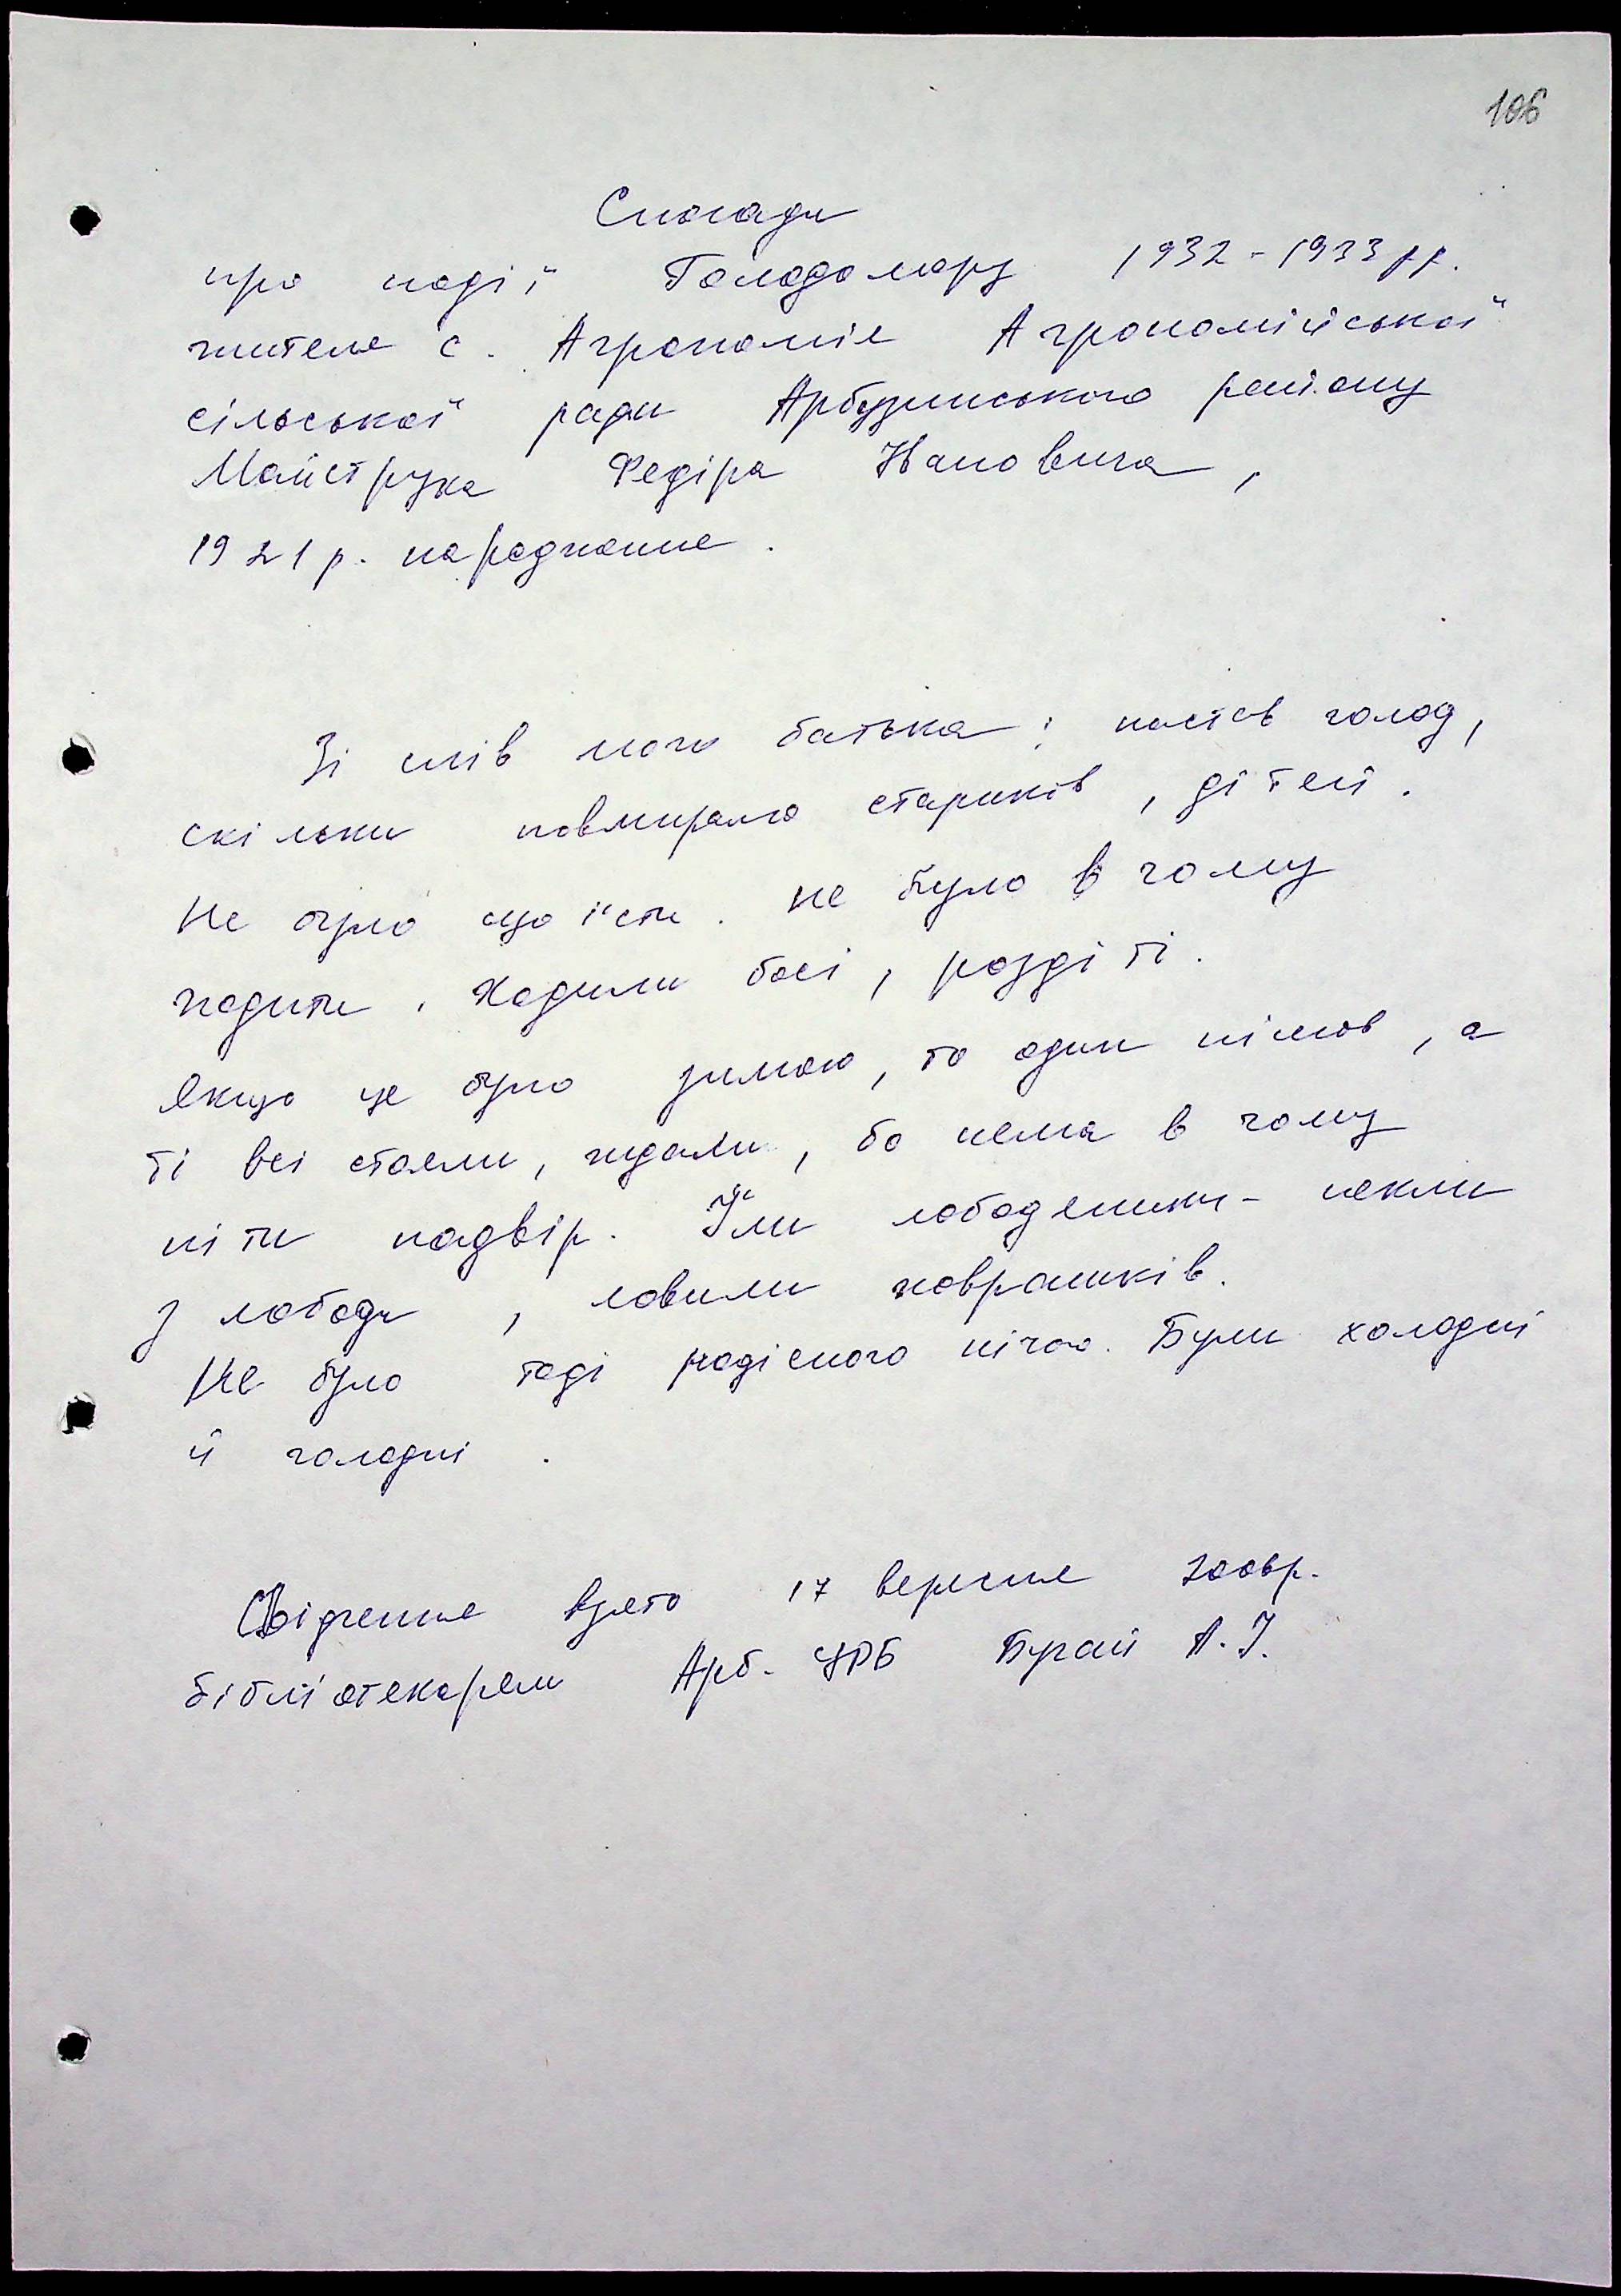 106
Спогади
про події Голодомору 1932-1933 рр.
жителя с. Агрономія Агрономійської
сільської ради Арбузинського району
Майструка Федіра Івановича,
1921 р. народження.
Зі слів мого батька: настав голод,
скільки повмирало стариків, дітей.
Не було що їсти. Не було в чому
ходити. Ходили босі, роздіті.
Якщо це було зимою, то один пішов, а
ті всі стояли, ждали, бо нема в чому
піти надвір. Їли лободяники - пекли
з лободи, ловили ховрашків.
Не було тоді радісного нічого. Були холодні
й голодні.
Свідчення взято 17 вересня р.
бібліотекарем Арб. ЦРБ А. І.